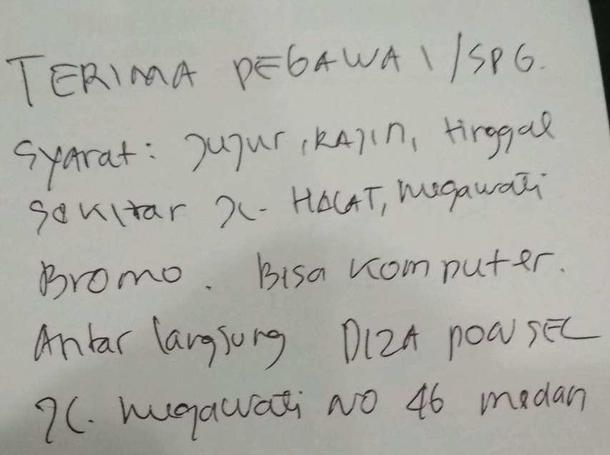 TERIMA PEGAWAI/SPG.
Syarat: Jujur, RAJIN, tinggal
Sekitar JL. HALAT, Megawati
Bromo. Bisa Komputer.
Antar langsung DIZA PONSEL
JL. Megawati NO 46 medan